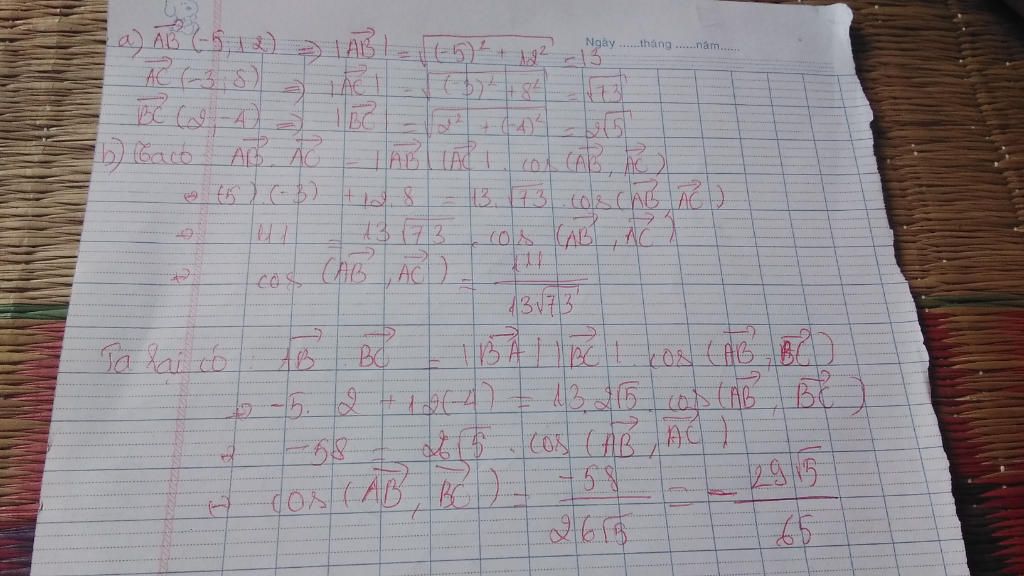 Ngày ......tháng ......năm......
a) $\overrightarrow{AB}$ (-5; 12) ⇒ |$\overrightarrow{AB}$| = $\sqrt{(-5)^2 + 12^2}$ = 13
$\overrightarrow{AC}$ (-3; 8) ⇒ |$\overrightarrow{AC}$| = $\sqrt{(-3)^2 + 8^2}$ = $\sqrt{73}$
$\overrightarrow{BC}$ (2; -4) ⇒ |$\overrightarrow{BC}$| = $\sqrt{2^2 + (-4)^2}$ = $2\sqrt{5}$
b) Ta có $\overrightarrow{AB}$ . $\overrightarrow{AC}$ = |$\overrightarrow{AB}$| |$\overrightarrow{AC}$| . cos ($\overrightarrow{AB}$, $\overrightarrow{AC}$)
⇒ (5) . (-3) + 12 . 8 = 13 . $\sqrt{73}$ . cos ($\overrightarrow{AB}$ $\overrightarrow{AC}$)
⇒ 111 = $13\sqrt{73}$ . cos ($\overrightarrow{AB}$, $\overrightarrow{AC}$)
⇒ cos ($\overrightarrow{AB}$, $\overrightarrow{AC}$) = $\frac{111}{13\sqrt{73}}$
Ta lại có : $\overrightarrow{AB}$ . $\overrightarrow{BC}$ = |$\overrightarrow{BA}$| |$\overrightarrow{BC}$| cos ($\overrightarrow{AB}$, $\overrightarrow{BC}$)
⇒ -5 . 2 + 12(-4) = 13 . $2\sqrt{5}$ . cos ($\overrightarrow{AB}$, $\overrightarrow{BC}$)
⇒ -58 = $26\sqrt{5}$ . cos ($\overrightarrow{AB}$, $\overrightarrow{AC}$)
⇒ cos ($\overrightarrow{AB}$, $\overrightarrow{BC}$) = $\frac{-58}{26\sqrt{5}}$ = $-\frac{29\sqrt{5}}{65}$